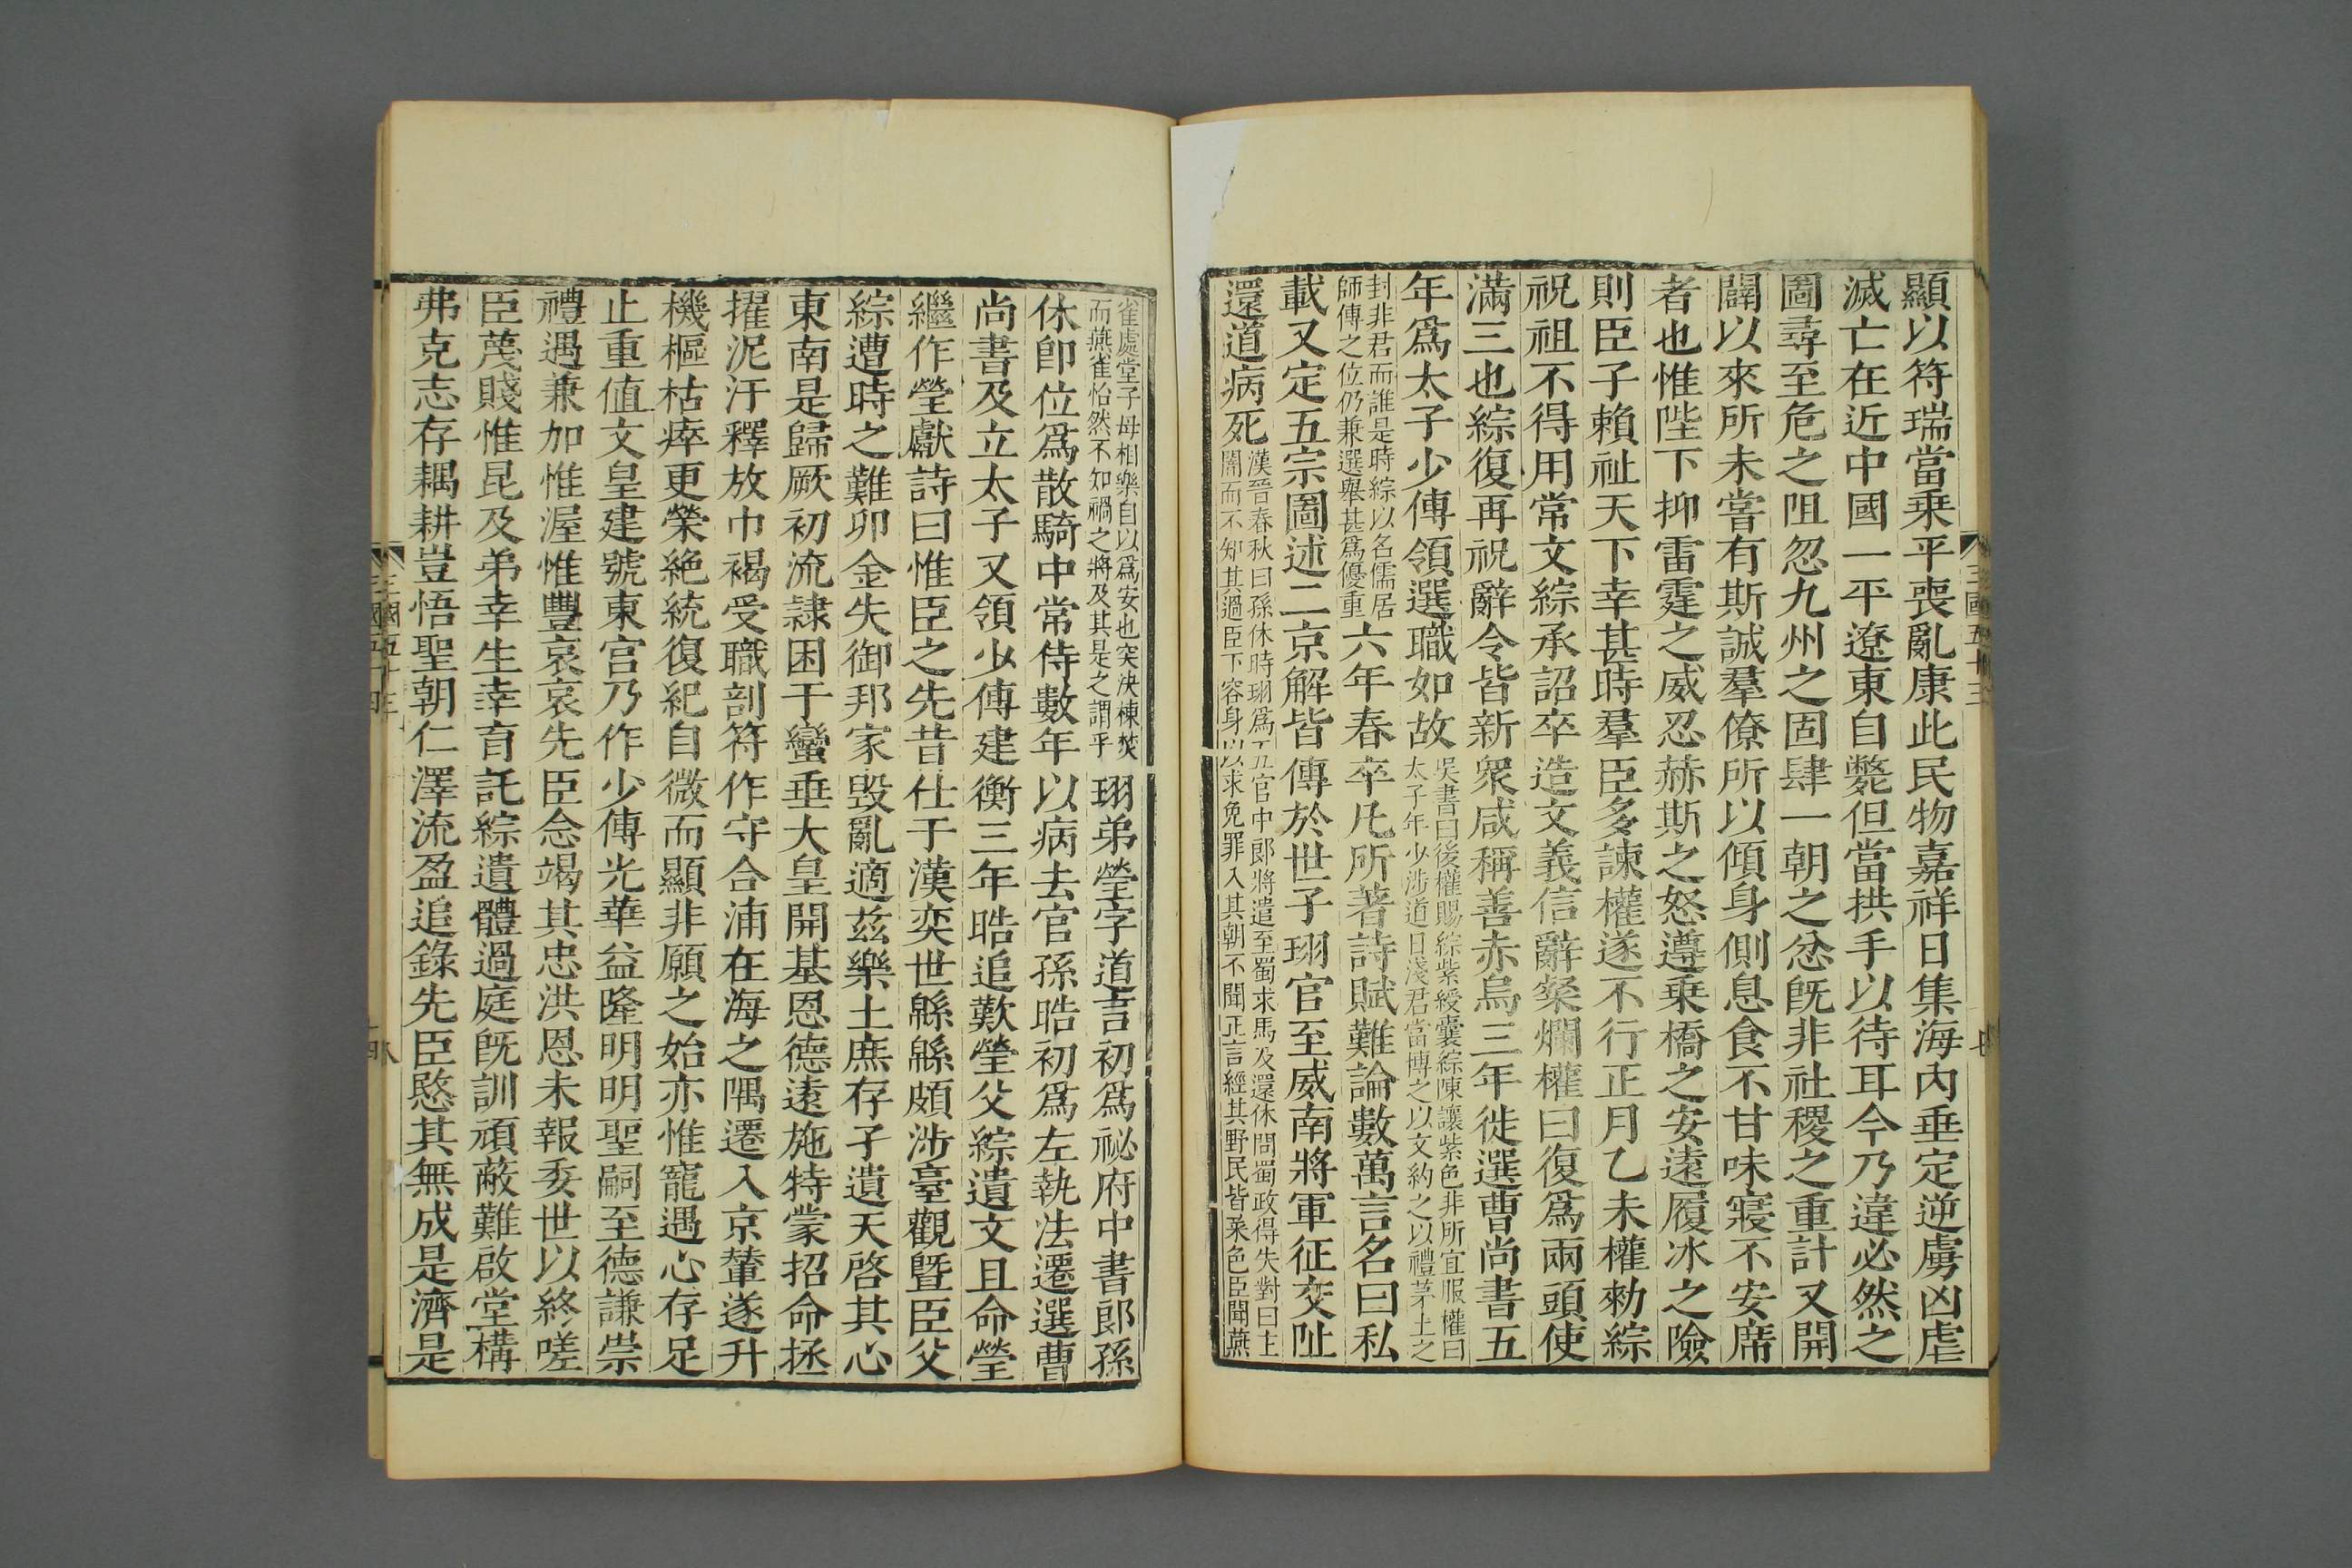 顯以符瑞當乗平喪亂康此民物嘉祥日集海內垂定逆虜凶虐
滅亡在近中國一平遼東自斃但當拱手以待耳今乃違必然之
圖尋至危之阻忽九州之固肆一朝之忿旣非社稷之重計又開
闢以來所未嘗有斯誠羣僚所以傾身側息食不甘味寢不安席
者也惟陛下抑雷霆之威忍赫斯之怒遵乗橋之安遠履冰之險
則臣子賴祉天下幸甚時羣臣多諫權遂不行正月乙未權勑綜
祝祖不得用常文綜承詔卒造文義信辭粲爛權曰復爲兩頭使
滿三也綜復再祝辭令皆新衆咸稱善赤烏三年徙選曹尚書五
年爲太子少傅領選職如故
吳書曰後權賜綜紫綬囊綜陳讓紫色非所宜服權曰
太子年少涉道日淺君當博之以文約之以禮茅土之
封非君而誰是時綜以名儒居
師傅之位仍兼選舉甚爲優重
六年春卒凡所著詩賦難論數萬言名曰私
載又定五宗圖述二京解皆傳於世子珝官至威南將軍征交阯
還道病死
漢晉春秋曰孫休時珝爲五官中郞將遣至蜀求馬及還休問蜀政得失對曰主
闇而不知其過臣下容身以求免罪入其朝不聞正言經其野民皆菜色臣聞燕
雀處堂子母相樂自以爲安也突決棟焚
而燕雀怡然不知禍之將及其是之謂乎
珝弟瑩字道言初爲祕府中書郞孫
休卽位爲散騎中常侍數年以病去官孫晧初爲左執法遷選曹
尚書及立太子又領少傅建衡三年晧追歎瑩父綜遺文且命瑩
繼作瑩獻詩曰惟臣之先昔仕于漢奕世緜緜頗涉臺觀曁臣父
綜遭時之難卯金失御邦家毀亂適茲樂土庶存孑遺天啓其心
東南是歸厥初流隷困于蠻垂大皇開基恩德遠施特蒙招命拯
擢泥汙釋放巾褐受職剖符作守合浦在海之隅遷入京輦遂升
機樞枯瘁更榮絶統復紀自微而顯非願之始亦惟寵遇心存足
止重值文皇建號東宮乃作少傅光華益隆明明聖嗣至德謙崇
禮遇兼加惟渥惟豐哀哀先臣念竭其忠洪恩未報委世以終嗟
臣蔑賤惟昆及弟幸生幸育託綜遺體過庭旣訓頑蔽難啟堂構
弗克志存耦耕豈悟聖朝仁澤流盈追錄先臣愍其無成是濟是
三國五十三
七
三國五十三
八